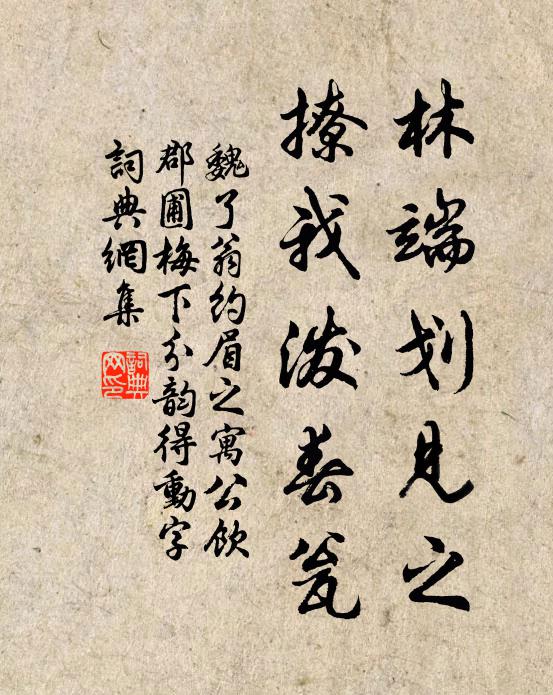 林端划见之
撩我泼春瓮
魏了翁约眉之寓公饮
郡圃梅下分韵得動字
詞典網集
詞典网印